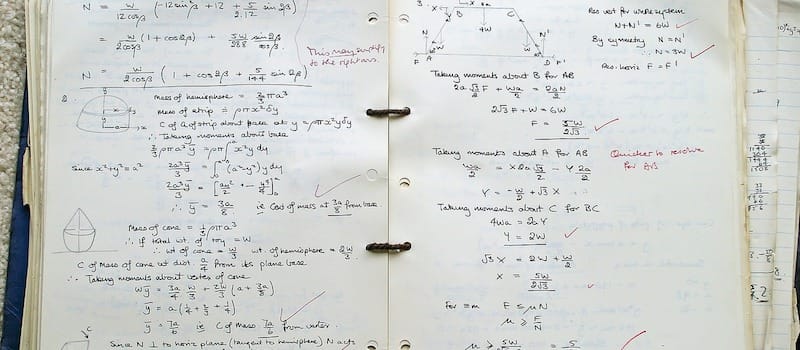 N = W/12cosβ (-12sin²β + 12 + 5/2.12 sin2β)
= W/2cosβ (1 + cos2β) + 5W sin2β/288 cosβ
This may simplify to the right ans.
N = W/2cosβ (1 + cos2β + 5/144 sin2β)
2.
Mass of hemisphere = 2/3 πρa³
Mass of strip = ρπx²δy
C of G of strip about base at y = ρπx²yδy
∴ Taking moments about base
2/3 ρπa³ȳ = ρπ∫x²y dy
Since x²+y²=a²
2a³ȳ/3 = ∫(a²-y²)y dy
2a³ȳ/3 = [a²y²/2 - y⁴/4]
∴ ȳ = 3a/8 ie C of mass at 3a/8 from base
Mass of cone = 1/3 ρπa³
∴ If total wt. of toy = W
∴ wt of cone = W/3 wt. of hemisphere = 2W/3
C of Mass of cone at dist. a/4 from its plane base
∴ Taking moments about vertex of cone
Wȳ = 3a/4 W/3 + 2W/3 (a + 3a/8)
ȳ = a(1/4 + 2/3 + 1/4)
ȳ = 7a/6 ie C of mass 7a/6 from vertex.
C
Since N ⊥ to horiz plane (tangent to hemisphere) N acts
3.
X
B
C
4W
Y
N
N'
W
W
F
A
D
F'
Res vert for whole system
N+N' = 6W
By symmetry N=N'
∴ N=3W
Res. horiz F = F'
Taking moments about B for AB
2a√3/2 F + Wa/2 = 2aN/2
2√3F + W = 6W
F = 5W/2√3
Taking moments about A for AB
Wa/2 = X2a√3/2 - Y2a/2
Y = -W/2 + √3X
Quicker to resolve for AB
Taking moments about C for BC
4Wa = 2aY
Y = 2W
√3X = 2W + W/2
X = 5W/2√3
For ≡m F ≤ μN
μ ≥ F/N
μ ≥ 5W = 5